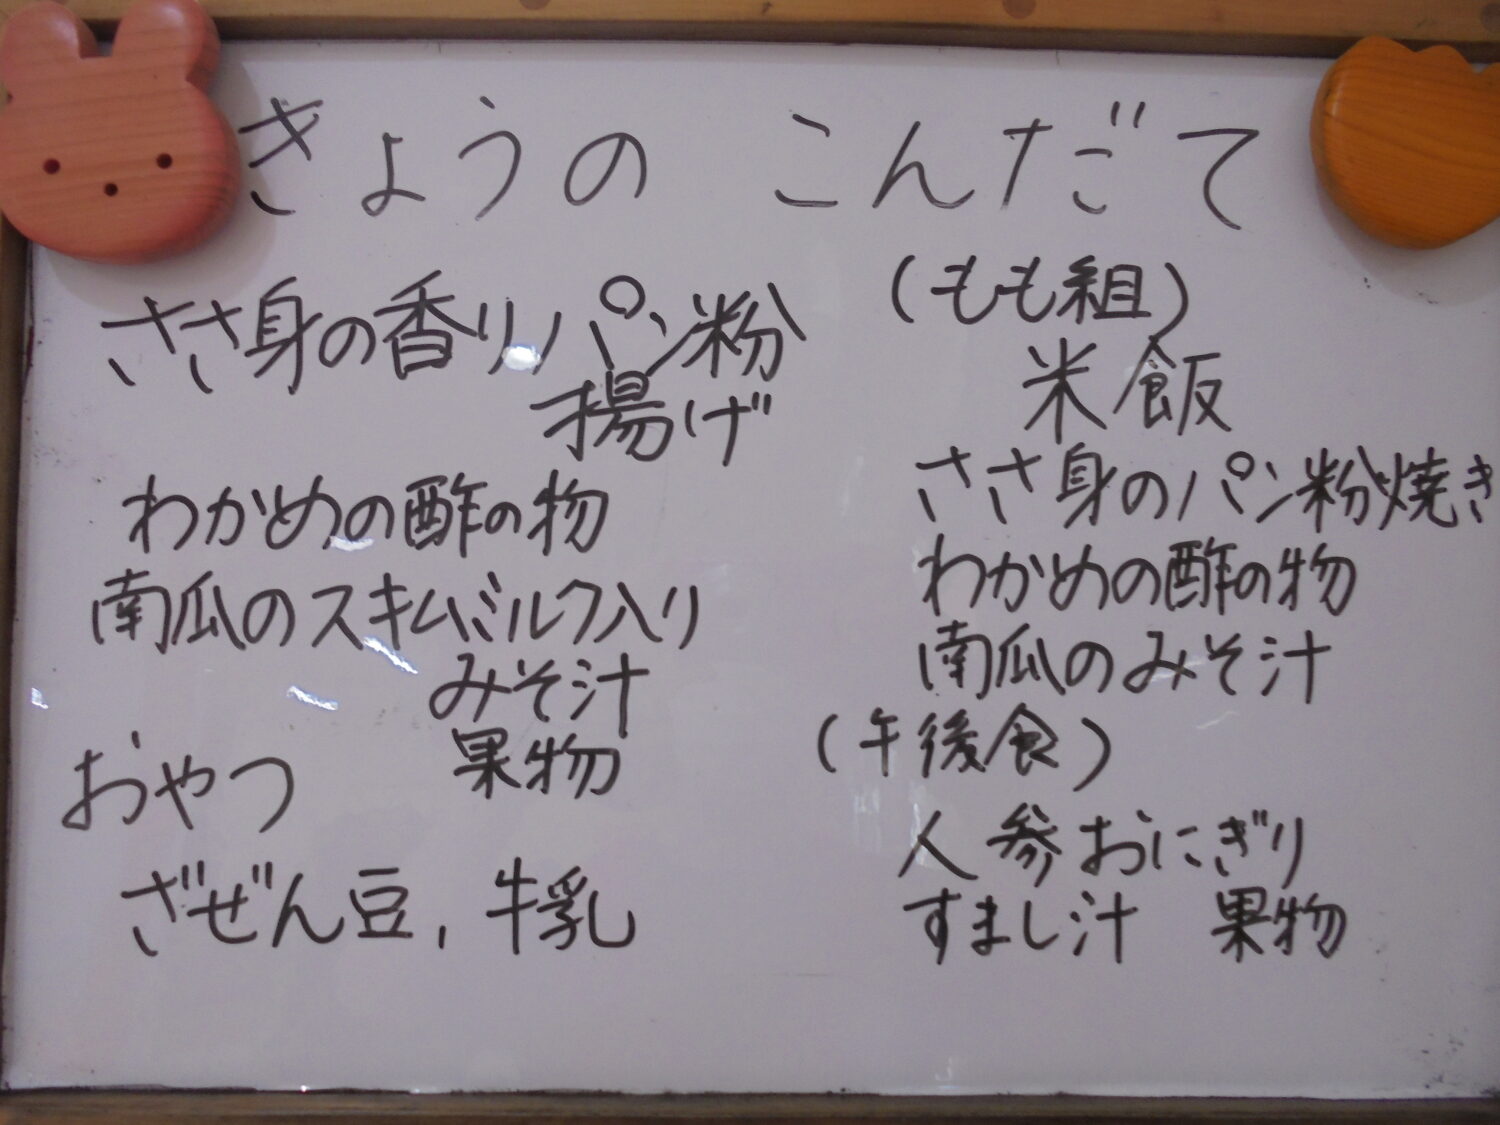 きょうの こんだて
ささ身の香りパン粉
揚げ
わかめの酢の物
南瓜のスキムミルク入り
みそ汁
果物
おやつ
ざぜん豆,牛乳
(もも組)
米飯
ささ身のパン粉焼き
わかめの酢の物
南瓜のみそ汁
(午後食)
人参おにぎり
すまし汁 果物